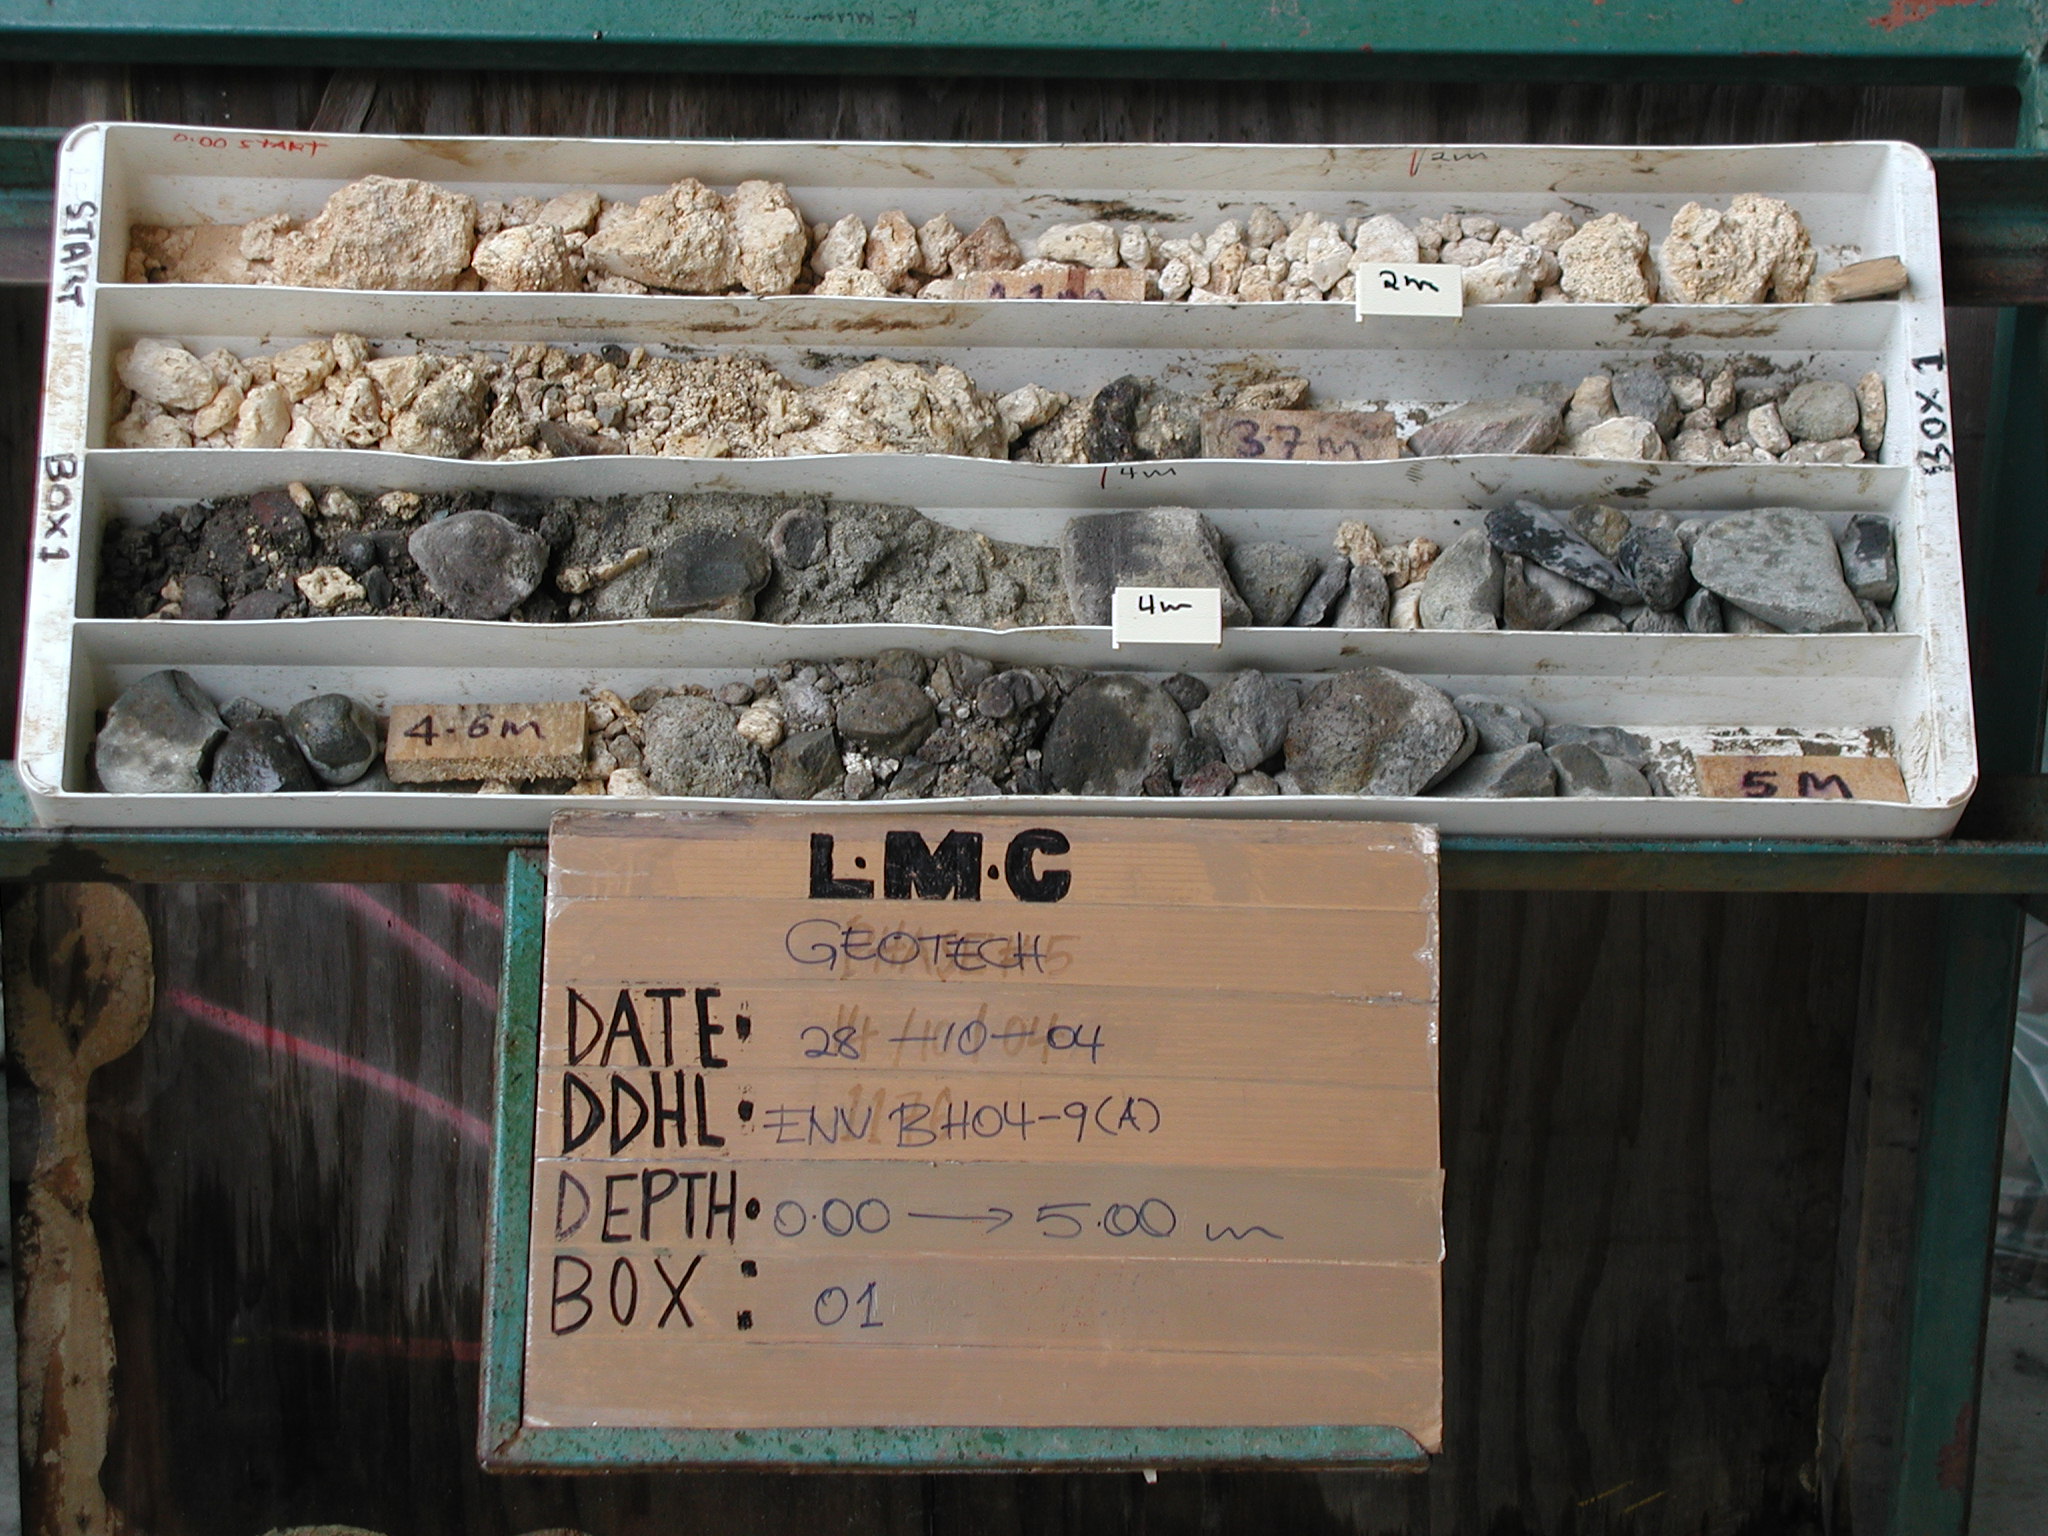 0.00 START
2m
START
BOX 1
2m
3.7 m
BOX 1
4m
4m
4.6 m
5 M
L.M.C
GEOTECH
DATE: 28-10-04
DDHL: ENV BH04-9(A)
DEPTH: 0.00 → 5.00 m
BOX : 01